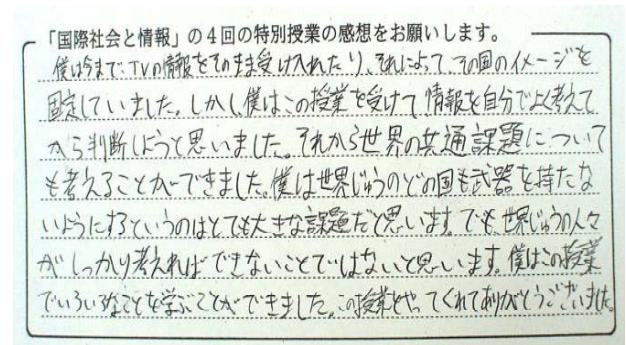 「国際社会と情報」の4回の特別授業の感想をお願いします。
僕は今まで、TVの情報をそのまま受け入れたり、それによって、その国のイメージを
固定していました。しかし僕はこの授業を受けて情報を自分でよく考えて
から判断しようと思いました。それから世界の共通課題について
も考えることができました。僕は世界じゅうのどの国も武器を持たな
いようにするというのはとても大きな課題だと思います。でも、世界じゅうの人々
がしっかり考えればできないことではないと思います。僕はこの授業
でいろいろなことを学ぶことができました。この授業をやってくれてありがとうございました。